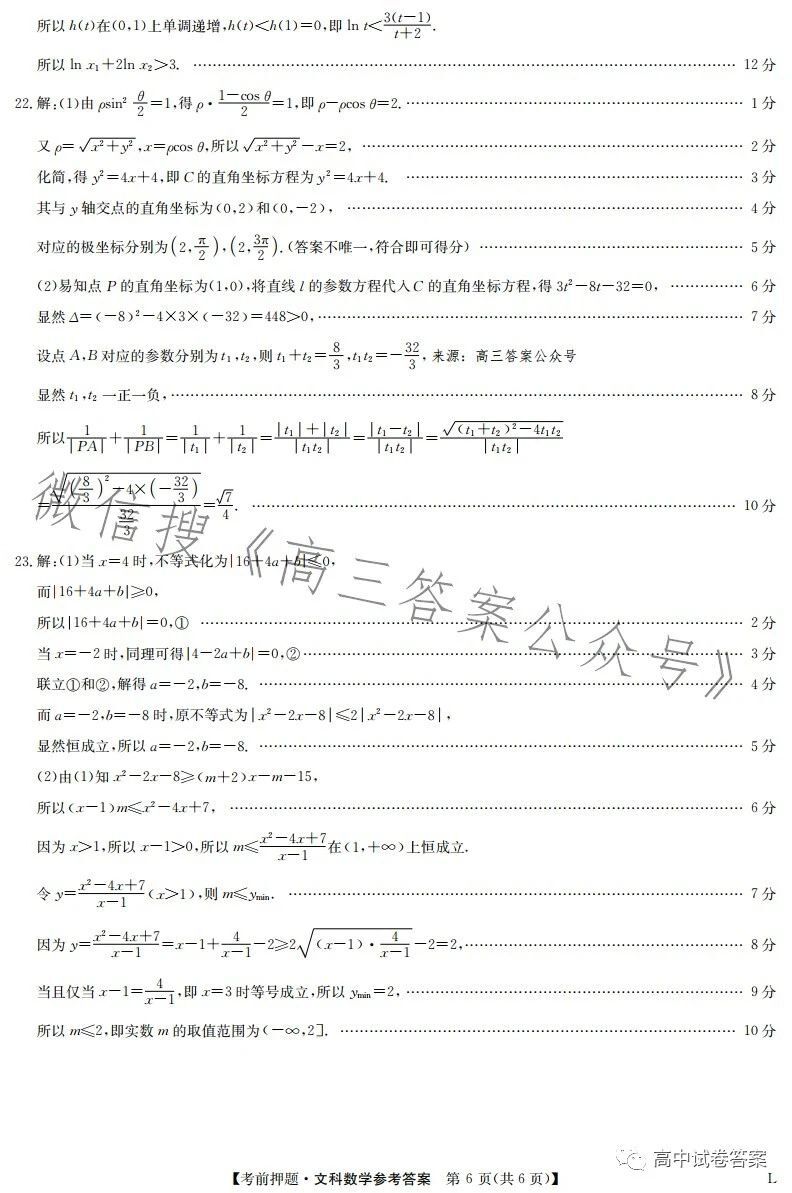 所以h(t)在(0,1)上单调递增,h(t)<h(1)=0,即ln t<3(t-1)/t+2.
所以ln x₁+2ln x₂>3. …… 12分
22.解:(1)由ρsin² θ/2=1,得ρ·1-cos θ/2=1,即ρ-ρcos θ=2. …… 1分
又ρ=√x²+y²,x=ρcos θ,所以√x²+y²-x=2, …… 2分
化简,得y²=4x+4,即C的直角坐标方程为y²=4x+4. …… 3分
其与y轴交点的直角坐标为(0,2)和(0,-2), …… 4分
对应的极坐标分别为(2,π/2),(2,3π/2).(答案不唯一,符合即可得分) …… 5分
(2)易知点P的直角坐标为(1,0),将直线l的参数方程代入C的直角坐标方程,得3t²-8t-32=0, …… 6分
显然Δ=(-8)²-4×3×(-32)=448>0, …… 7分
设点A,B对应的参数分别为t₁,t₂,则t₁+t₂=8/3,t₁t₂=-32/3, 来源:高三答案公众号
显然t₁,t₂一正一负, …… 8分
所以1/|PA|+1/|PB|=1/|t₁|+1/|t₂|=|t₁|+|t₂|/|t₁t₂|=|t₁-t₂|/|t₁t₂|=√(t₁+t₂)²-4t₁t₂/|t₁t₂|
=√(8/3)²-4×(-32/3)/32/3=√7/4. …… 10分
23.解:(1)当x=4时,不等式化为|16+4a+b|≤0,
而|16+4a+b|≥0,
所以|16+4a+b|=0,① …… 2分
当x=-2时,同理可得|4-2a+b|=0,② …… 3分
联立①和②,解得a=-2,b=-8. …… 4分
而a=-2,b=-8时,原不等式为|x²-2x-8|≤2|x²-2x-8|,
显然恒成立,所以a=-2,b=-8. …… 5分
(2)由(1)知x²-2x-8≥(m+2)x-m-15,
所以(x-1)m≤x²-4x+7, …… 6分
因为x>1,所以x-1>0,所以m≤x²-4x+7/x-1在(1,+∞)上恒成立.
令y=x²-4x+7/x-1(x>1),则m≤ymin. …… 7分
因为y=x²-4x+7/x-1=x-1+4/x-1-2≥2√(x-1)·4/x-1-2=2, …… 8分
当且仅当x-1=4/x-1,即x=3时等号成立,所以ymin=2, …… 9分
所以m≤2,即实数m的取值范围为(-∞,2]. …… 10分
微信搜《高三答案公众号》
高中试卷答案
【考前押题·文科数学参考答案 第6页(共6页)】 L